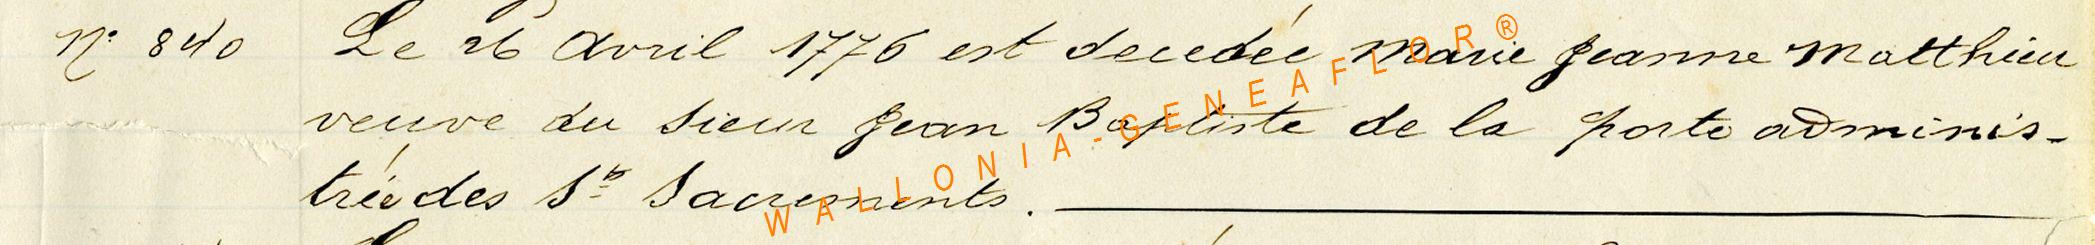 N° 840 Le 26 Avril 1776 est decedée Marie Jeanne Matthieu
veuve du sieur Jean Baptiste de la porte adminis-
trée des Sts Sacrements.
WALLONIA-GENEAFLOR®